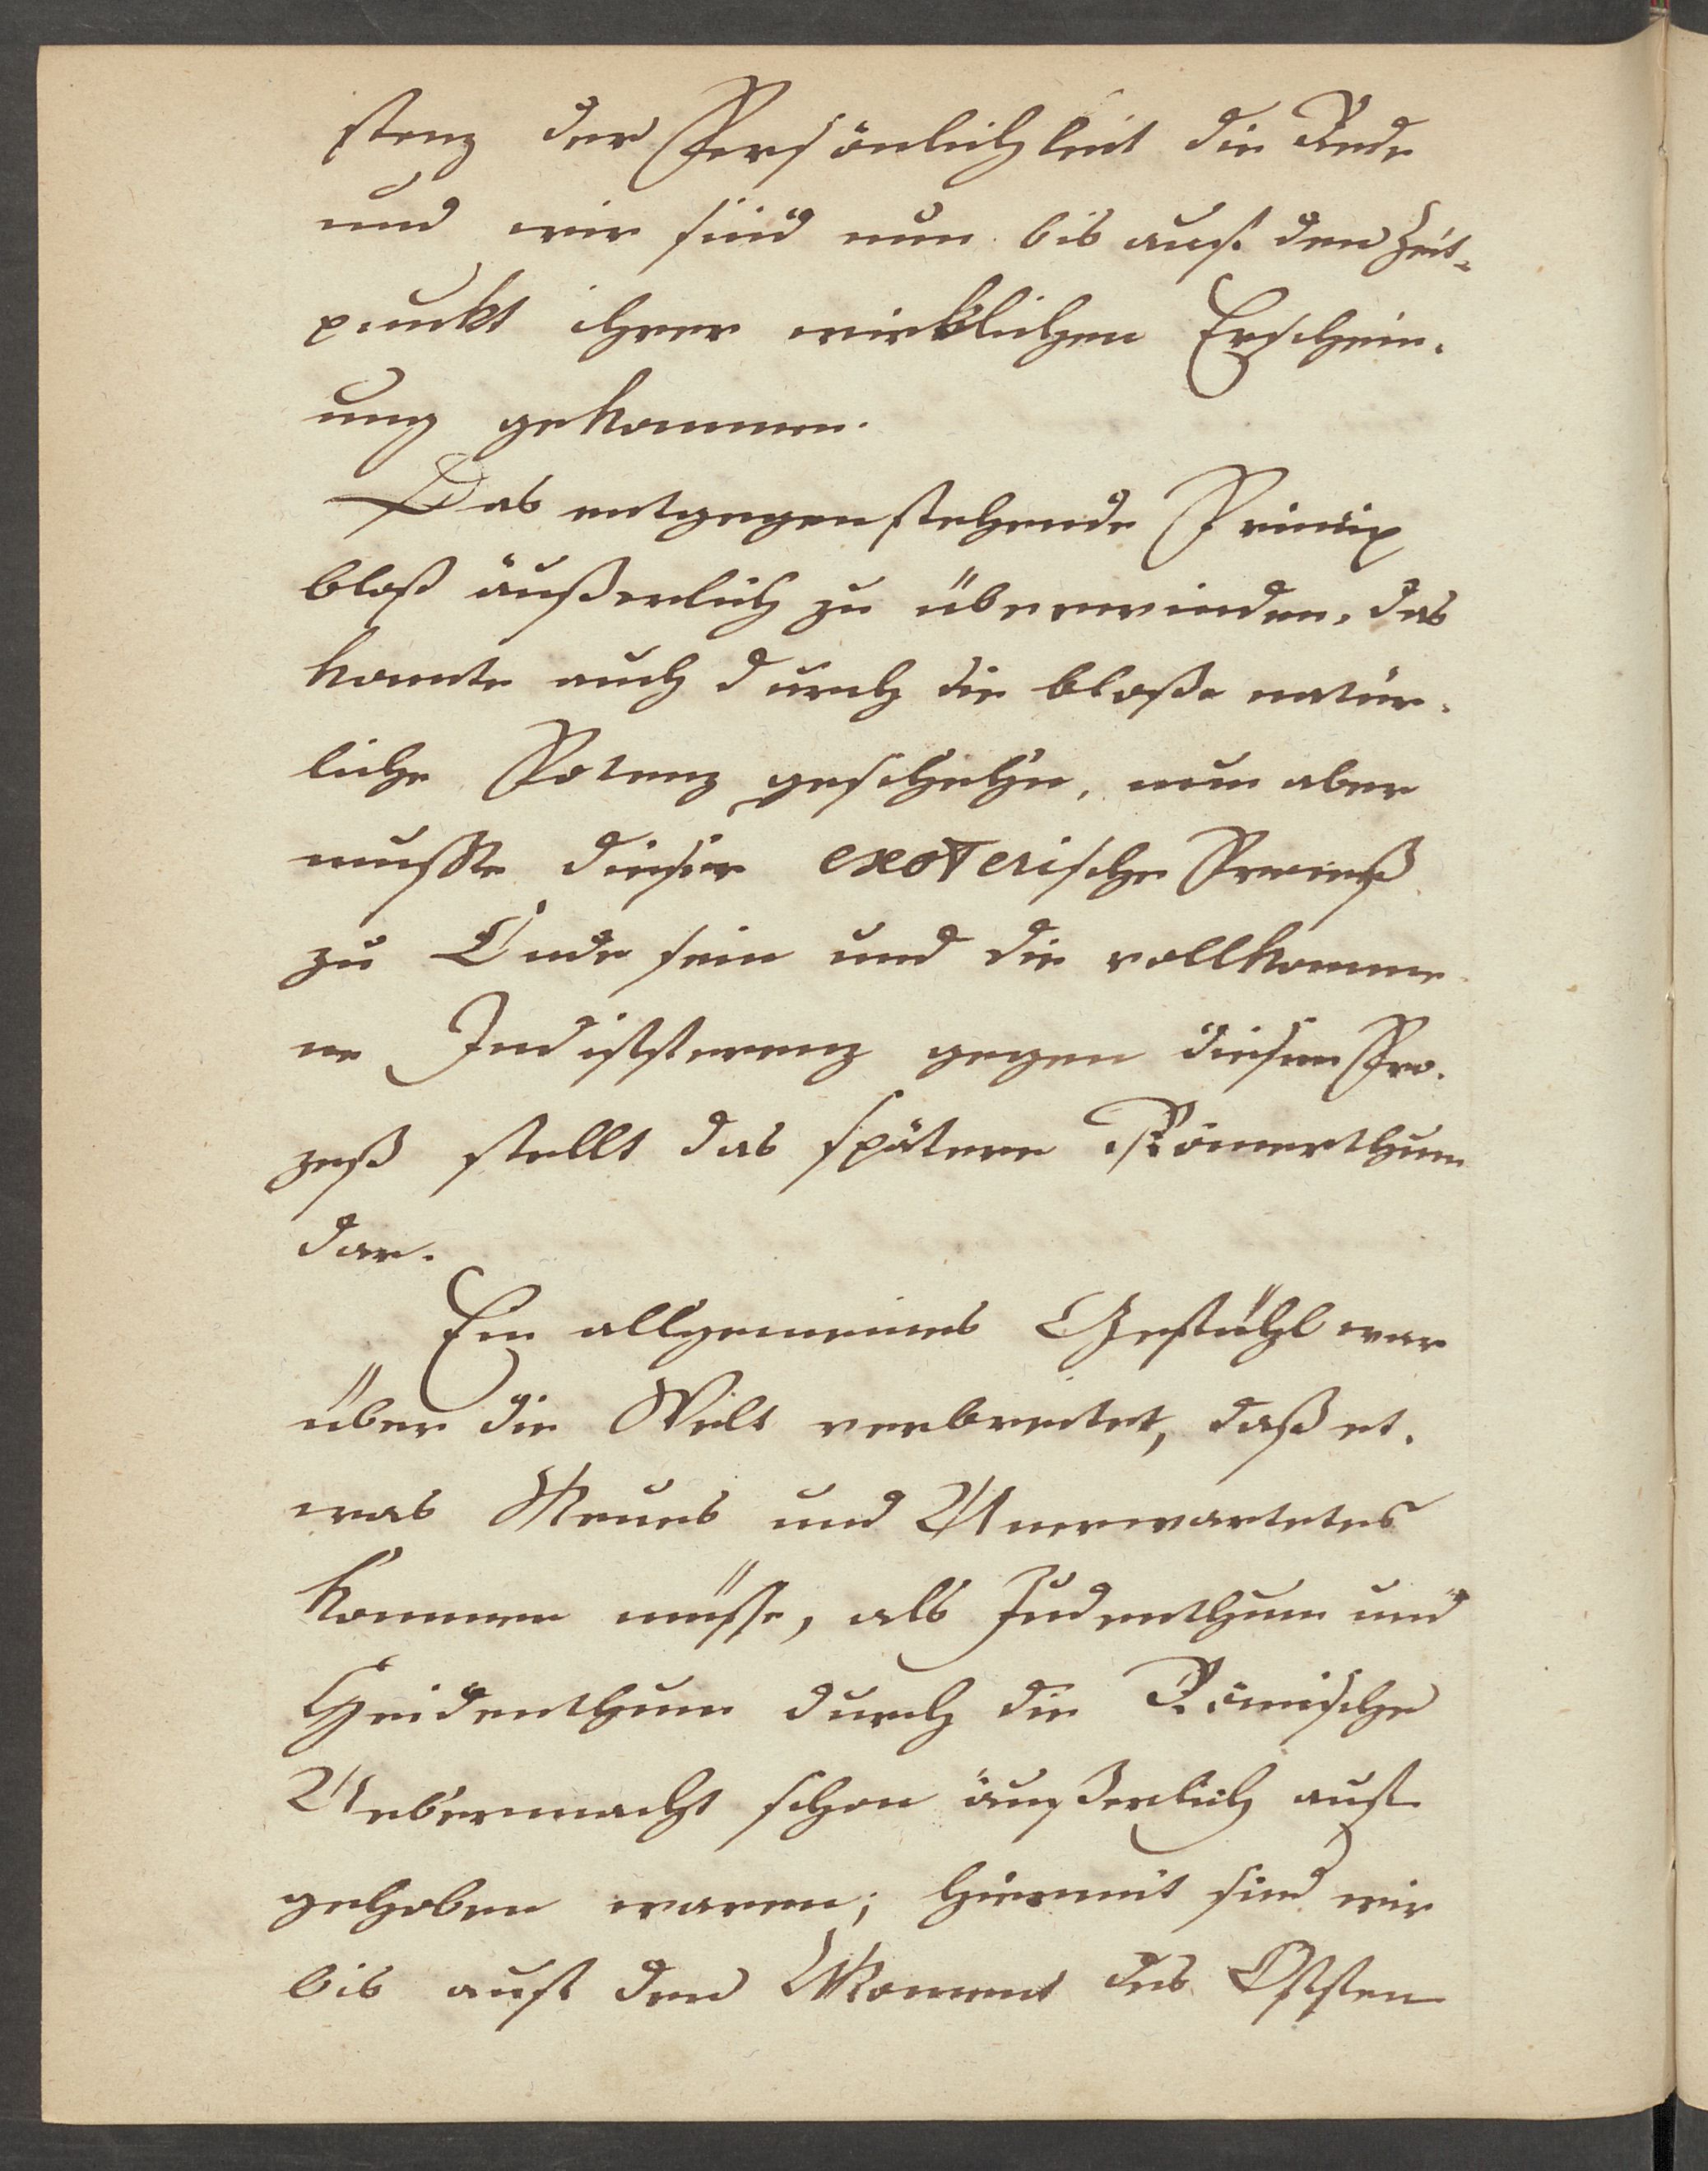 stenz der Persönlichkeit die Rede
und wir sind nun bis auf den Zeit-
punkt ihrer wirklichen Erschein-
ung gekommen.
Das entgegenstehende Princip
bloß äußerlich zu überwinden, das
konnte auch durch die bloße natür-
liche Potenz geschehn, nun aber
mußte dieser exoterische Proceß
zu Ende sein und die vollkomme
ne Indifferenz gegen diesen Pro-
zeß stellt das spätere Römerthum
dar.
Ein allgemeines Gefühl war
über die Welt verbreitet, daß et-
was Neues und Unerwartetes
kommen müsse, als Judenthum und
Heidenthum durch die Römische
Uebermacht schon äußerlich auf
gehoben waren; hiermit sind wir
bis auf den Moment des Offen